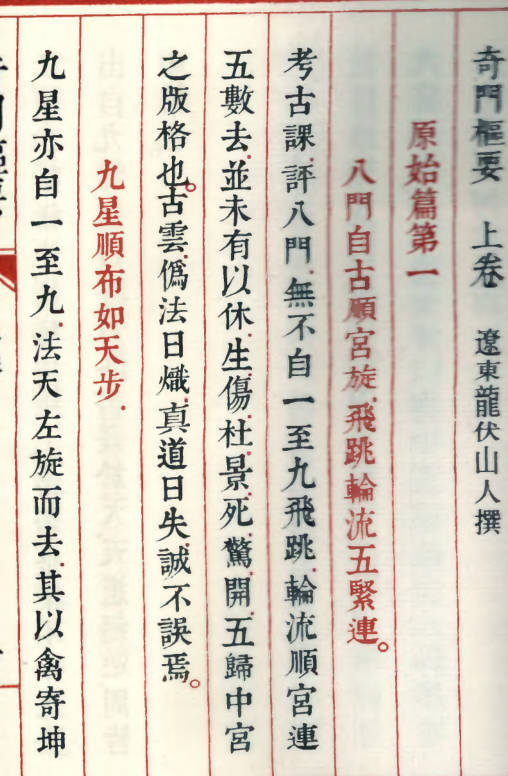 奇門樞要　上卷　遼東龍伏山人撰
原始篇第一
八門自古順宮旋.飛跳輪流五緊連。
考古課.評八門.無不自一至九飛跳.輪流順宮連
五數去.並未有以休.生.傷.杜.景.死.驚.開.五歸中宮
之版格也。古雲.僞法日熾.真道日失.誠不誤焉。
九星順布如天步.
九星亦自一至九.法天左旋而去.其以禽寄坤